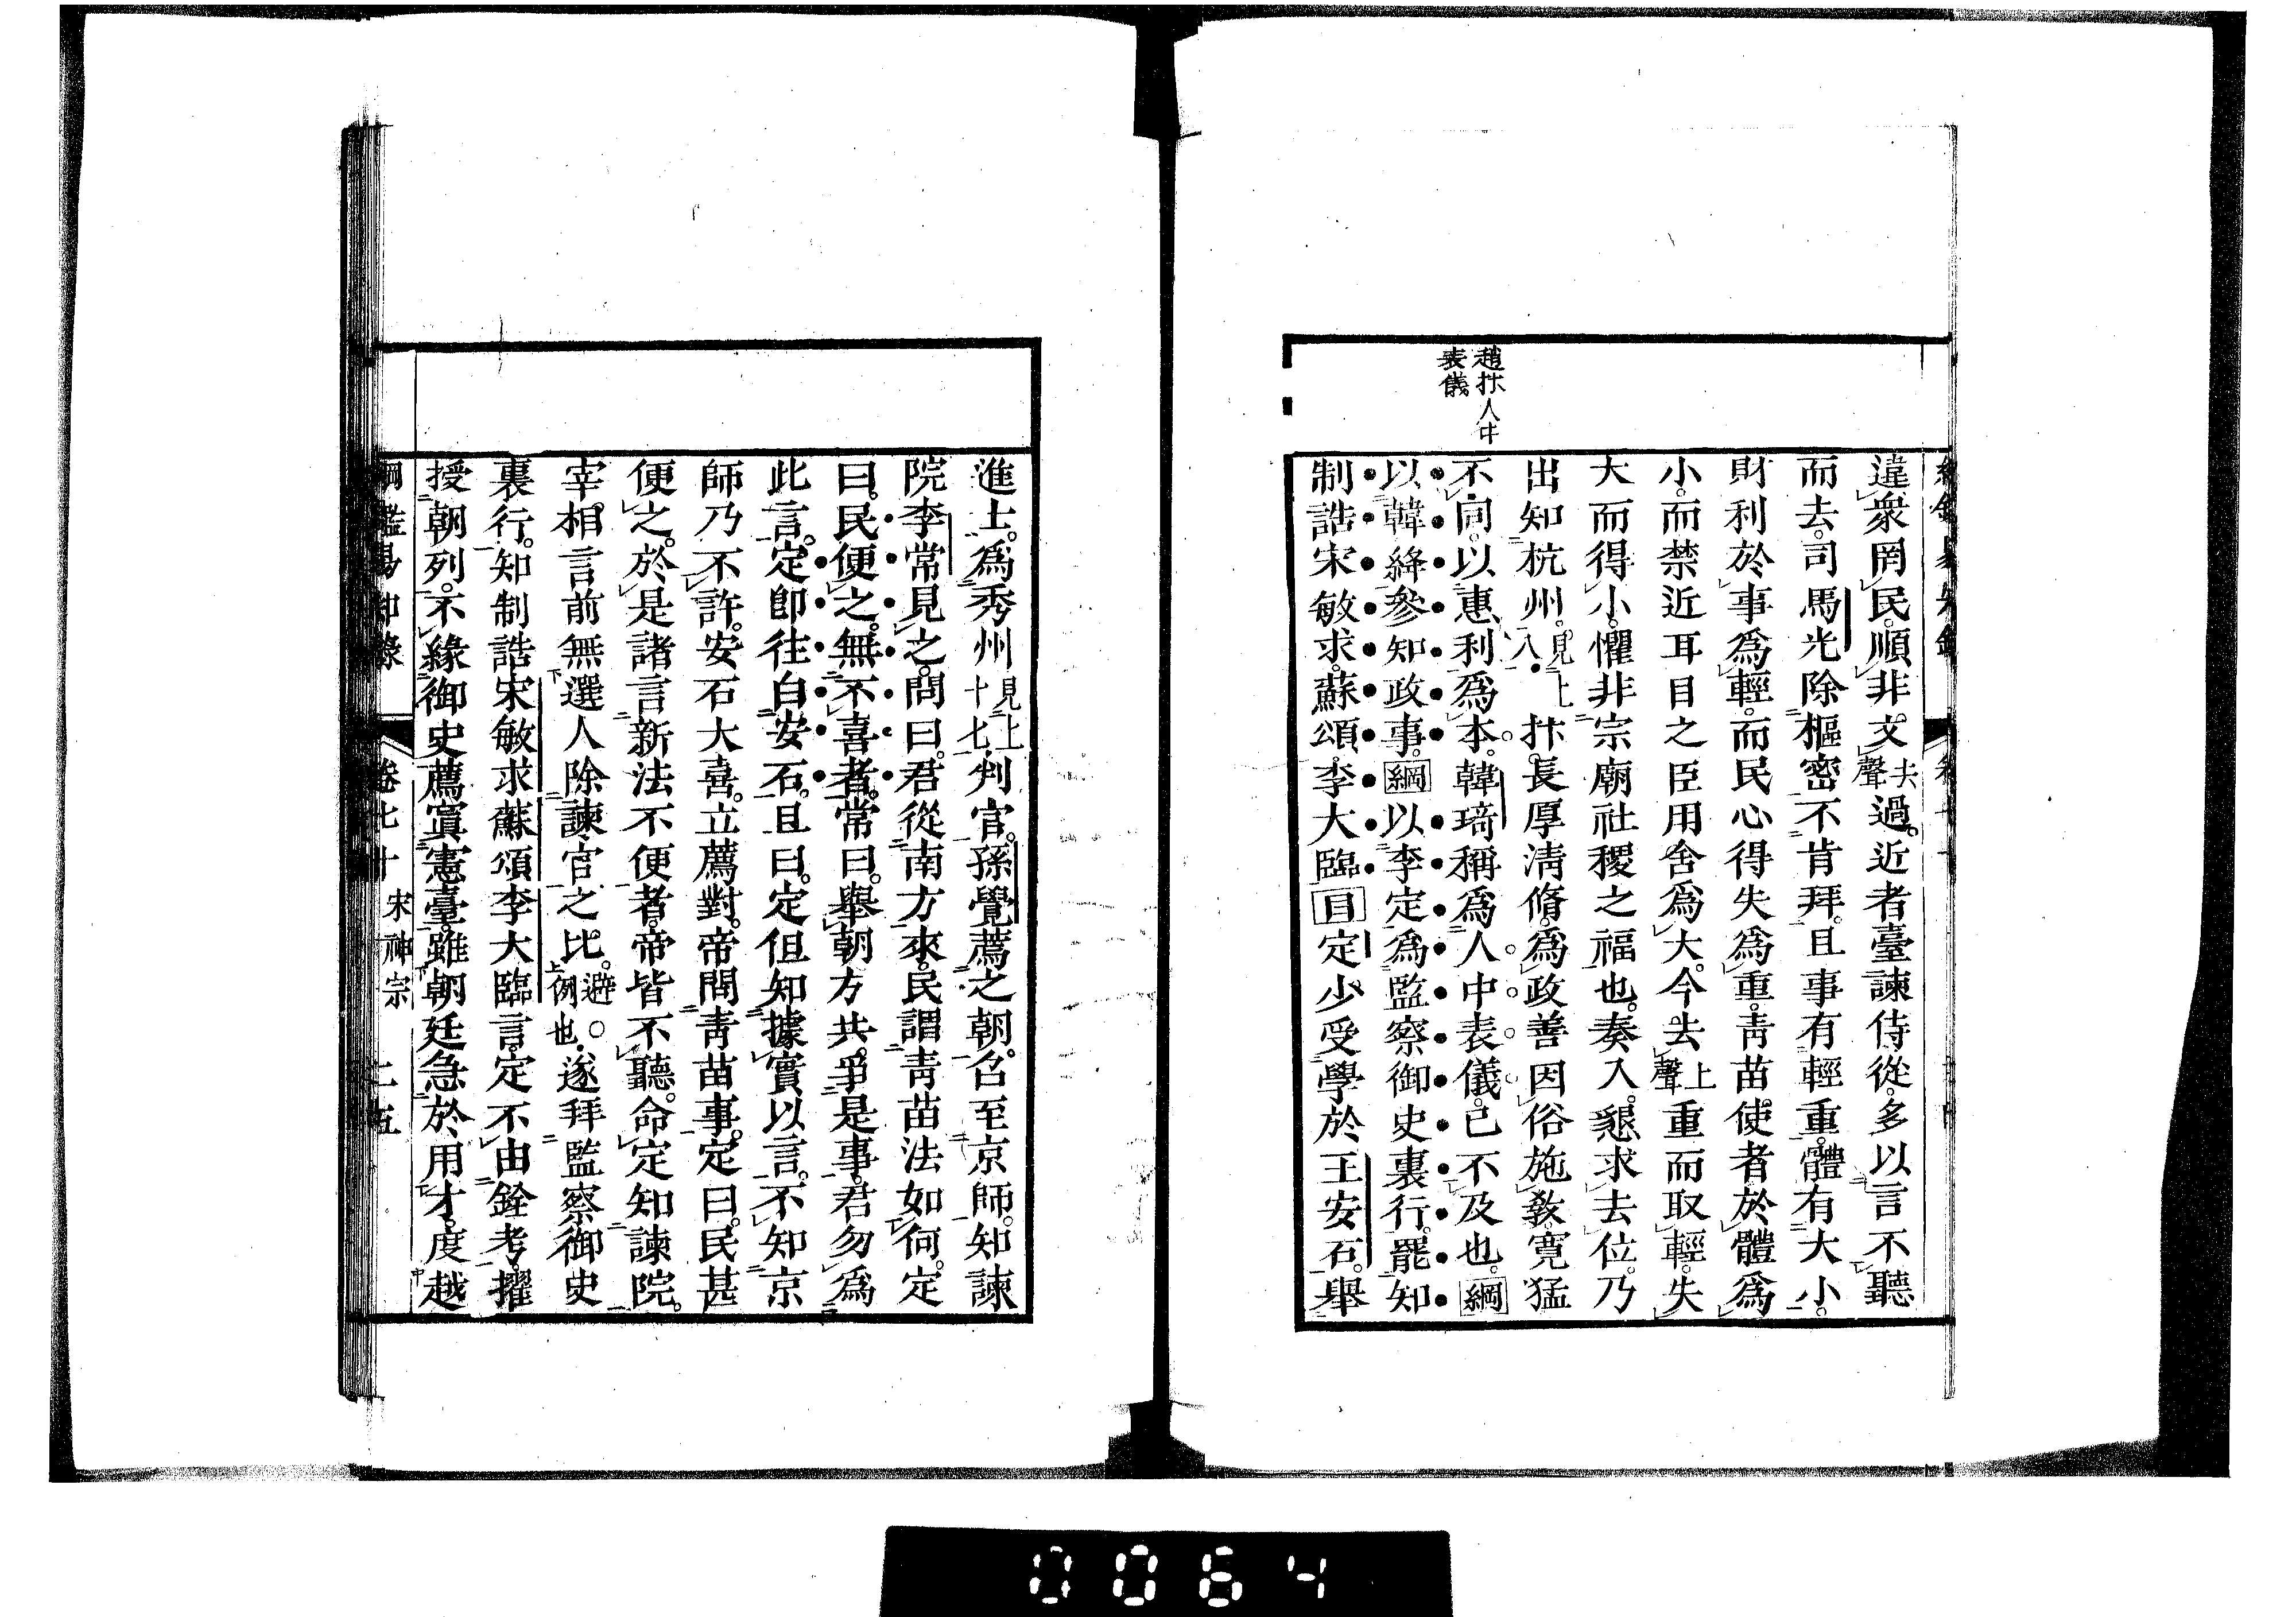 趙抃人中
表儀
違衆罔民。順非文去聲過。近者臺諫侍從。多以言不聽
而去。司馬光除樞密不肯拜。且事有輕重。體有大小。
財利於事爲輕。而民心得失爲重。靑苗使者於體爲
小。而禁近耳目之臣用舍爲大。今去上聲重而取輕。失
大而得小。懼非宗廟社稷之福也。奏入。懇求去位。乃
出知杭州。見上八抃。長厚淸脩。爲政善因俗施敎。寬猛
不同。以惠利爲本。韓琦稱爲人中表儀。己不及也。綱
以韓絳參知政事。綱以李定爲監察御史裏行。罷知
制誥宋敏求。蘇頌。李大臨目定少受學於王安石。舉
進士。爲秀州見上十七判官。孫覺薦之朝。召至京師。知諫
院李常見之。問曰。君從南方來。民謂靑苗法如何。定
曰。民便之。無不喜者。常曰。舉朝方共爭是事。君勿爲
此言。定卽往白安石。且曰。定但知據實以言。不知京
師乃不許。安石大喜。立薦對。帝問靑苗事。定曰。民甚
便之。於是諸言新法不便者。帝皆不聽。命定知諫院。
宰相言前無選人除諫官之比。避。○例也遂拜監察御史
裏行。知制誥宋敏求蘇頌李大臨言。定不由銓考。擢
授朝列。不緣御史薦寘憲臺。雖朝廷急於用才。度越
綱鑑易知錄 卷七十 宋神宗 二五
0064